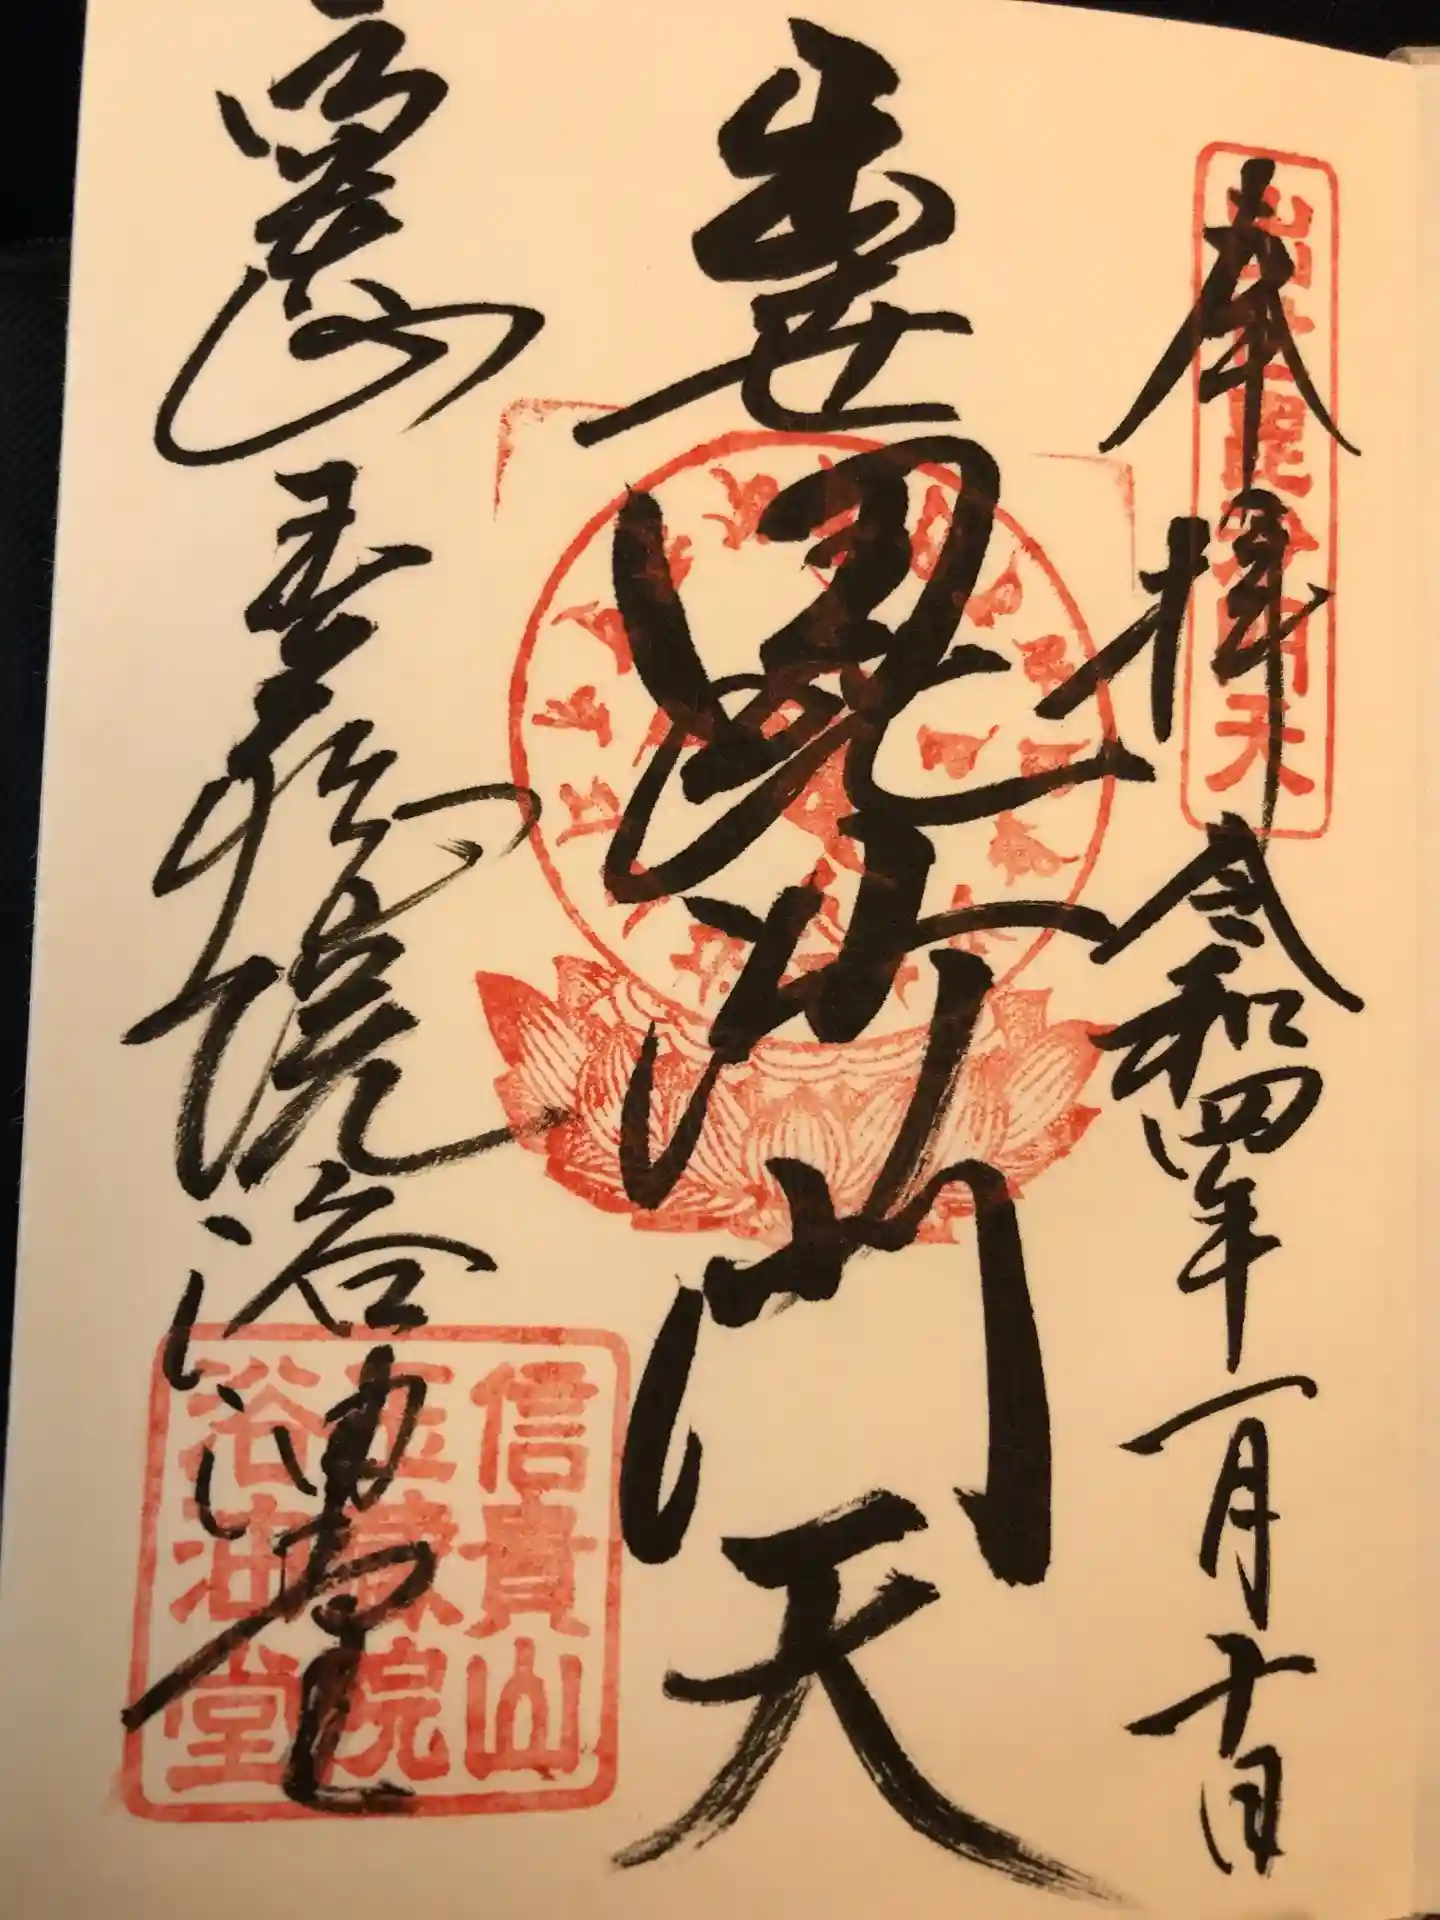 奉拝 令和四年一月十日
出世毘沙門天
出世毘沙門天
信貴山 玉蔵院 浴油堂
信貴山
玉蔵院
浴油堂